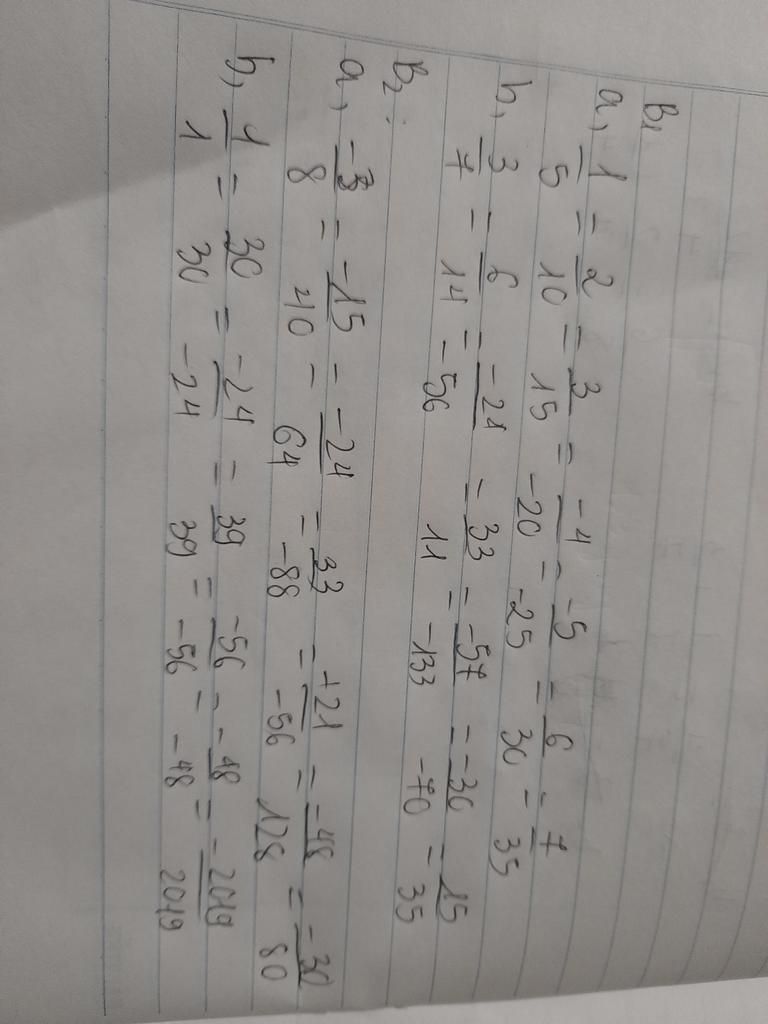 B1
a, 1/5 = 2/10 = 3/15 = -4/-20 = -5/-25 = 6/30 = 7/35
b, 3/7 = 6/14 = -21/-56 = 33/11 = -57/-133 = -30/-70 = 15/35
B2:
a, -3/8 = -15/40 = -24/64 = 33/-88 = +21/-56 = -48/128 = -30/80
b, 1/1 = 30/30 = -24/-24 = 39/39 = -56/-56 = -48/-48 = -2019/2019